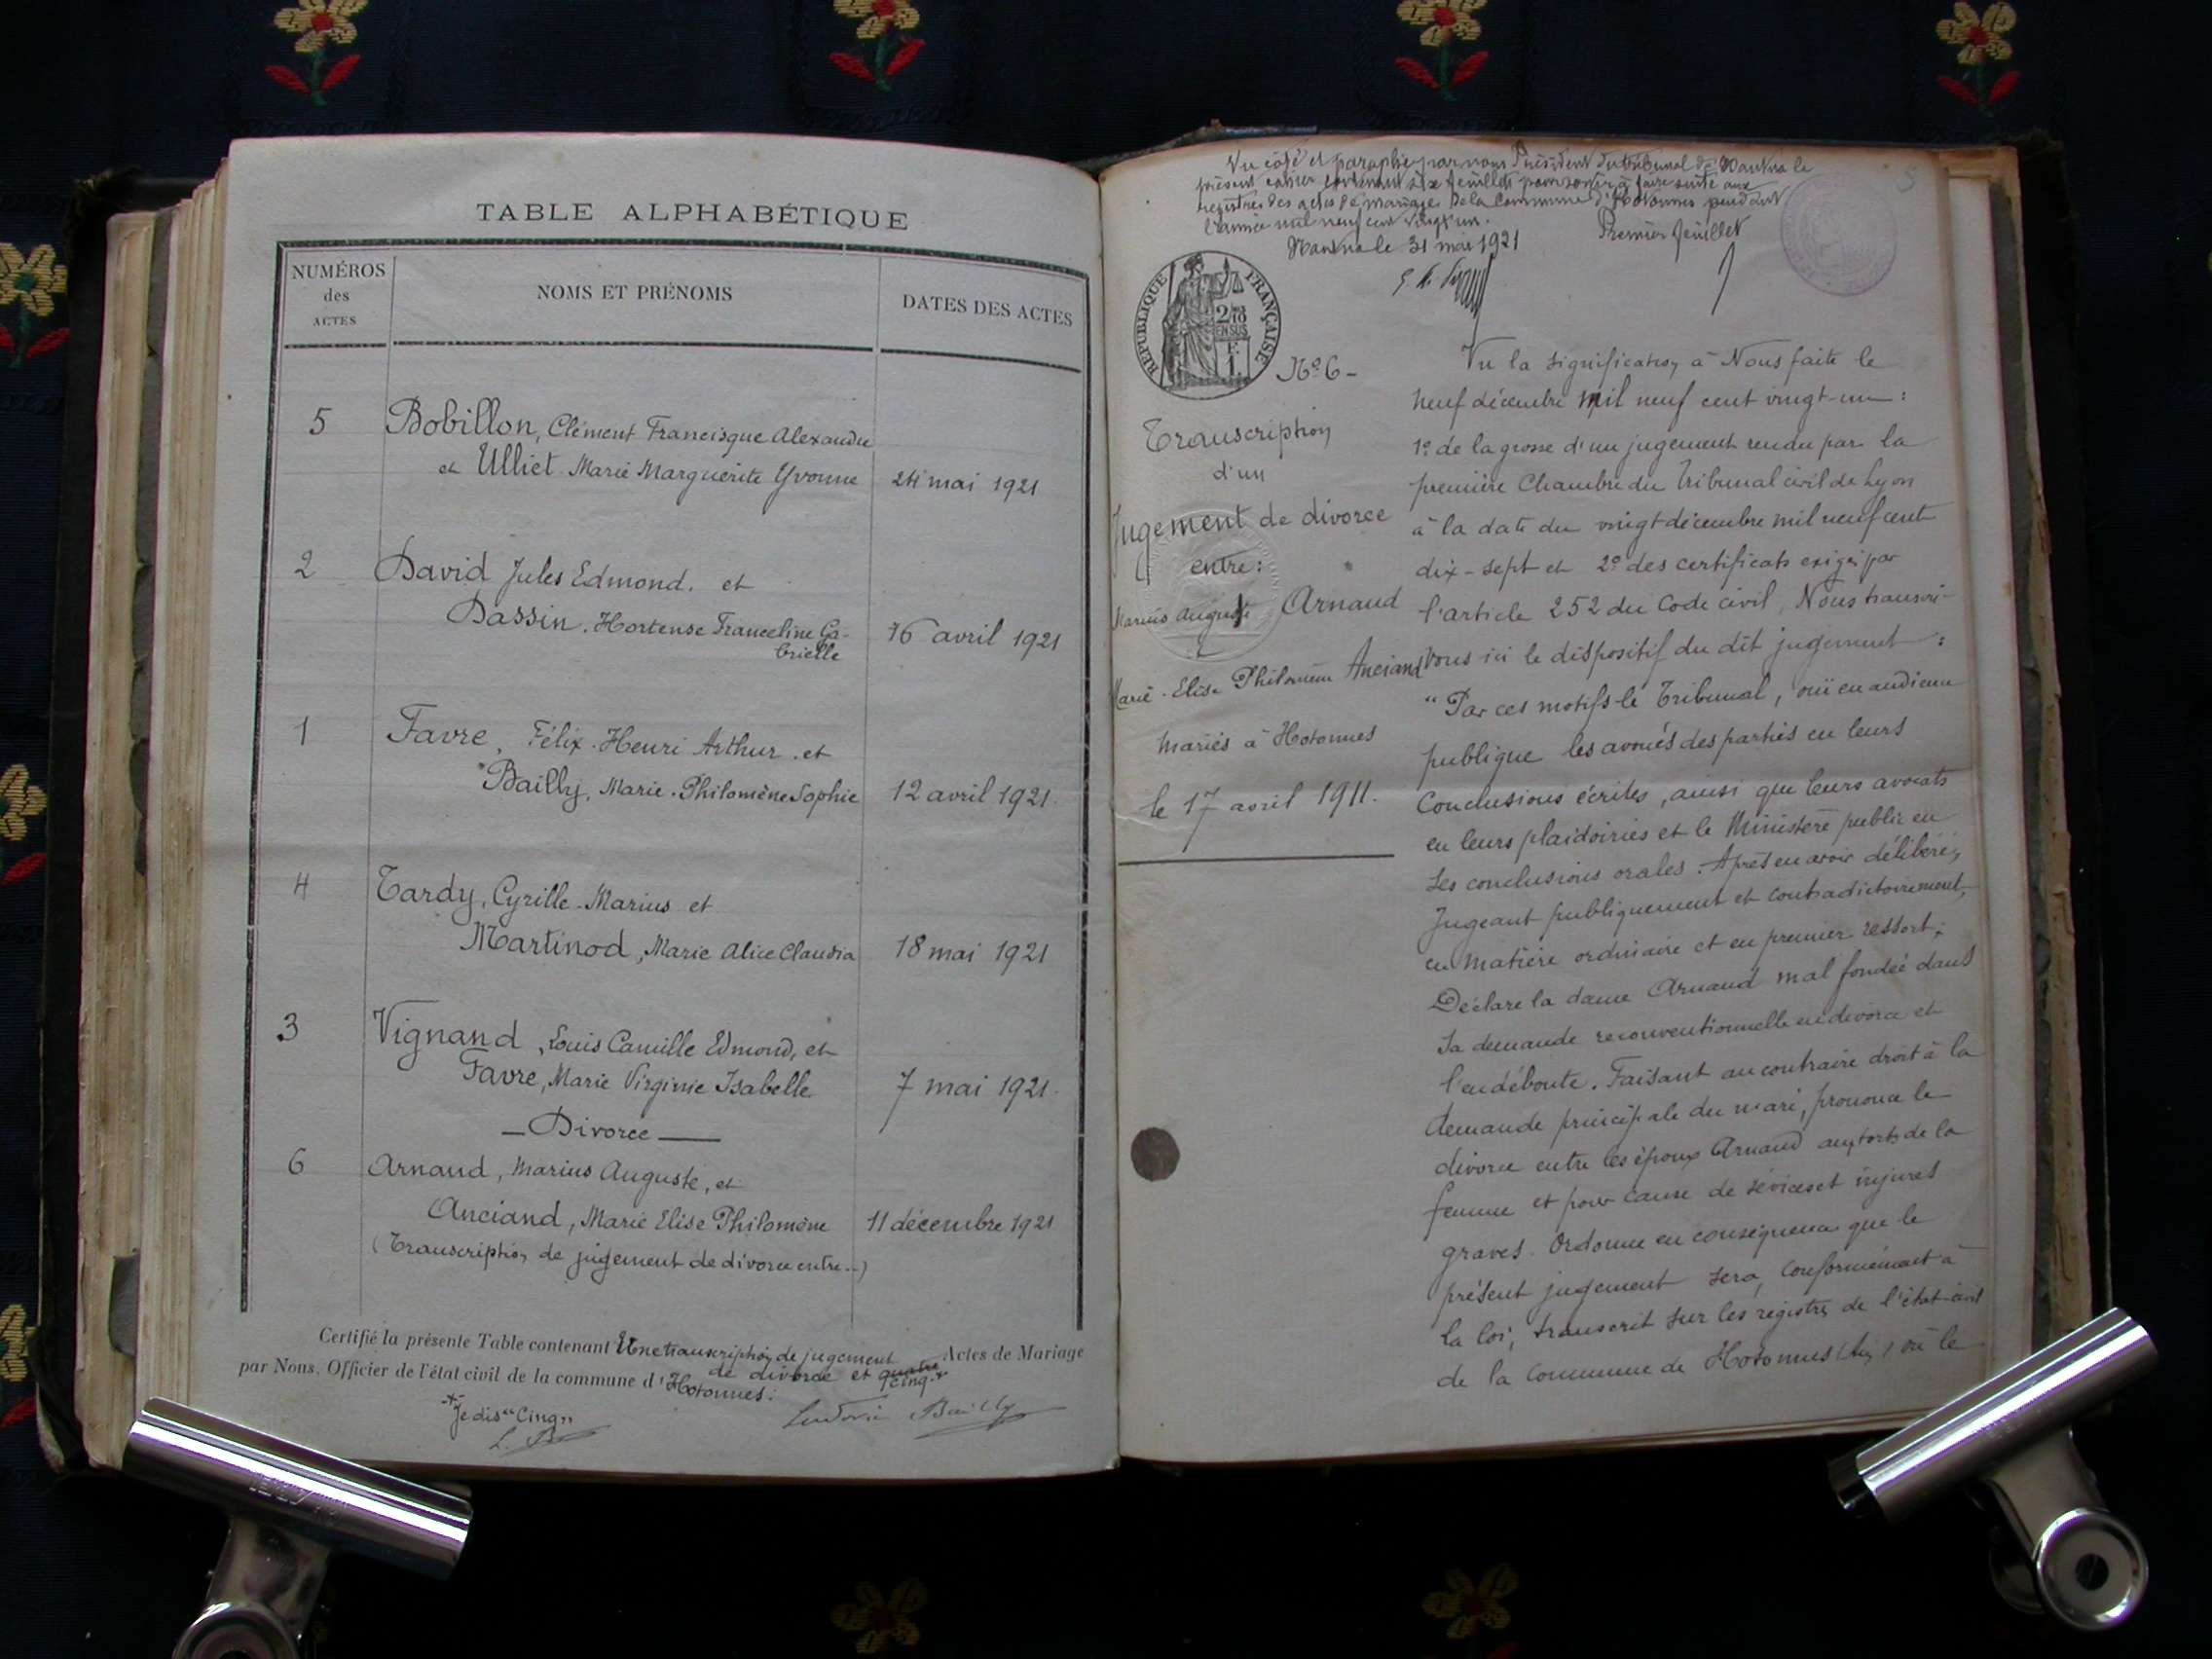 TABLE ALPHABÉTIQUE
NUMÉROS
des
ACTES
NOMS ET PRÉNOMS
DATES DES ACTES
5 Bobillon, Clément Francisque Alexandre
et Ulliet Marie Marguerite Yvonne 24 mai 1921
2 David Jules Edmond. et
Dassin. Hortense Franceline Ga-
brielle 16 avril 1921
1 Favre, Félix Henri Arthur. et
Bailly, Marie-Philomène Sophie 12 avril 1921.
4 Tardy, Cyrille-Marius et
Martinod, Marie Alice Claudia 18 mai 1921
3 Vignand, Louis Camille Edmond, et
Favre, Marie Virginie Isabelle 7 mai 1921.
— Divorce —
6 Arnaud, Marius Auguste, et
Anciand, Marie Elise Philomène 11 décembre 1921
(Transcription de jugement de divorce entre..)
Certifié la présente Table contenant Une transcription de jugement Actes de Mariage
de divorce et quatre cinq +
par Nous, Officier de l'état civil de la commune d'Hotonnes:
+ Je dis "Cinq"
L. B
Ludovic Bailly
Vu coté et paraphé par nous Président du tribunal de Nantua le
présent cahier contenant six feuillets pour servir à faire suite aux
registres des actes de mariage de la commune d'Hotonnes pendant
l'année mil neuf cent vingt un.
Nantua le 31 mai 1921
Premier feuillet
5
RÉPUBLIQUE FRANÇAISE
2/10
EN SUS
F.
1.
N° 6 -
Transcription
d'un
Jugement de divorce
entre:
Marius Auguste Arnaud
et
Marie-Elise Philomène Anciand
mariés à Hotonnes
le 17 avril 1911.
Vu la signification à Nous faite le
neuf décembre mil neuf cent vingt-un :
1° de la grosse d'un jugement rendu par la
première Chambre du Tribunal civil de Lyon
à la date du vingt décembre mil neuf cent
dix-sept et 2° des certificats exigés par
l'article 252 du Code civil, Nous transcri-
vons ici le dispositif du dit jugement :
"Par ces motifs le Tribunal, ouï en audience
publique les avoués des parties en leurs
Conclusions écrites, ainsi que leurs avocats
en leurs plaidoiries et le Ministère public en
ses conclusions orales. Après en avoir délibéré,
Jugeant publiquement et contradictoirement,
en matière ordinaire et en premier ressort;
Déclare la dame Arnaud mal fondée dans
sa demande reconventionnelle en divorce et
l'en déboute. Faisant au contraire droit à la
demande principale du mari, prononce le
divorce entre les époux Arnaud aux torts de la
femme et pour cause de sévices et injures
graves. Ordonne en conséquence que le
présent jugement sera, conformément à
la loi, transcrit sur les registres de l'état-civil
de la commune de Hotonnes (Ain) où le